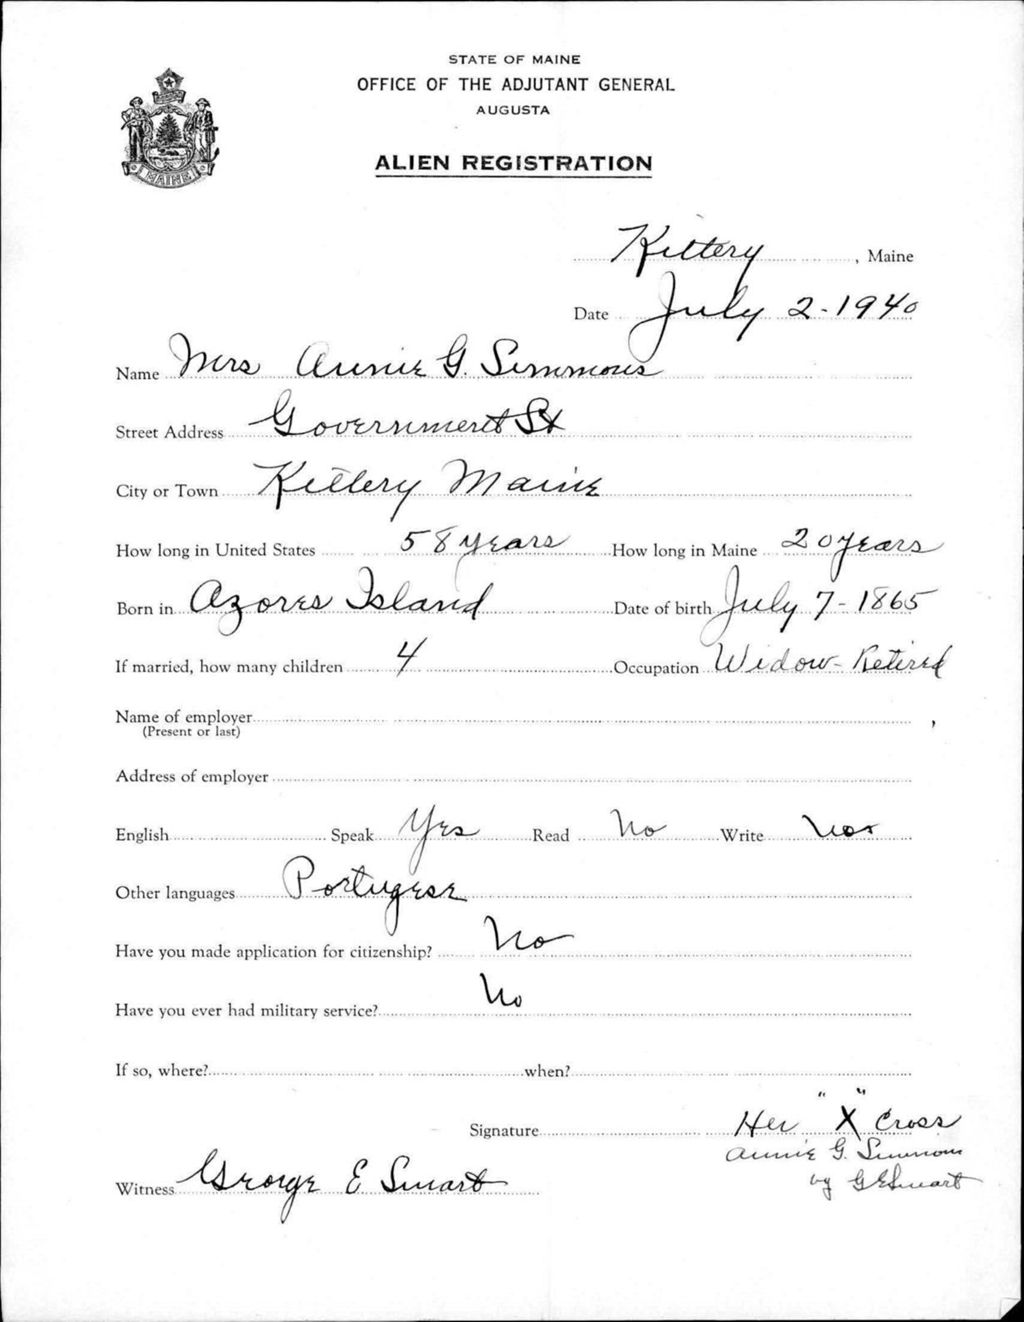 STATE OF MAINE
OFFICE OF THE ADJUTANT GENERAL
AUGUSTA
ALIEN REGISTRATION
Kittery, Maine
Date July 2-1940
Name Mrs Annie G. Simmons
Street Address Government St
City or Town Kittery Maine
How long in United States 58 years How long in Maine 20 years
Born in Azores Island Date of birth July 7-1865
If married, how many children 4 Occupation Widow-Retired
Name of employer
(Present or last)
Address of employer
English Speak Yes Read No Write No
Other languages Portugese
Have you made application for citizenship? No
Have you ever had military service? No
If so, where? when?
Signature Her "X" Cross
Annie G. Simmons
by G E Smart
Witness George E Smart
MAINE